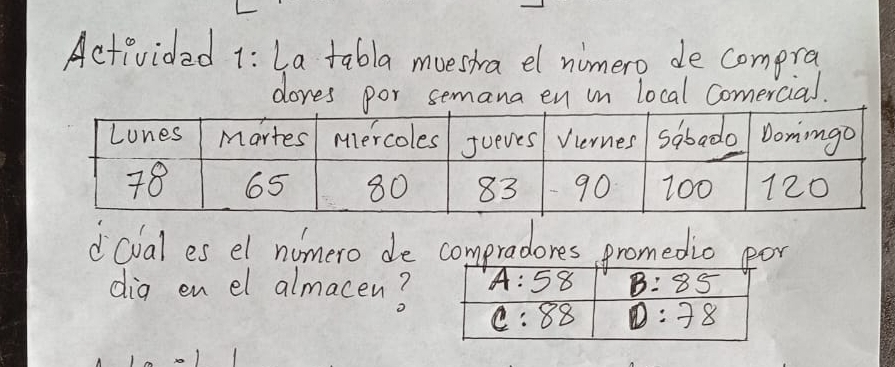 Actividad 1: La tabla muestra el número de compra
dores por semana en un local comercial.
Lunes Martes Miércoles Jueves Viernes Sábado Domingo
78 65 80 83 90 100 120
¿Cuál es el número de compradores promedio por
día en el almacen?
A: 58 B: 85
C: 88 D: 78